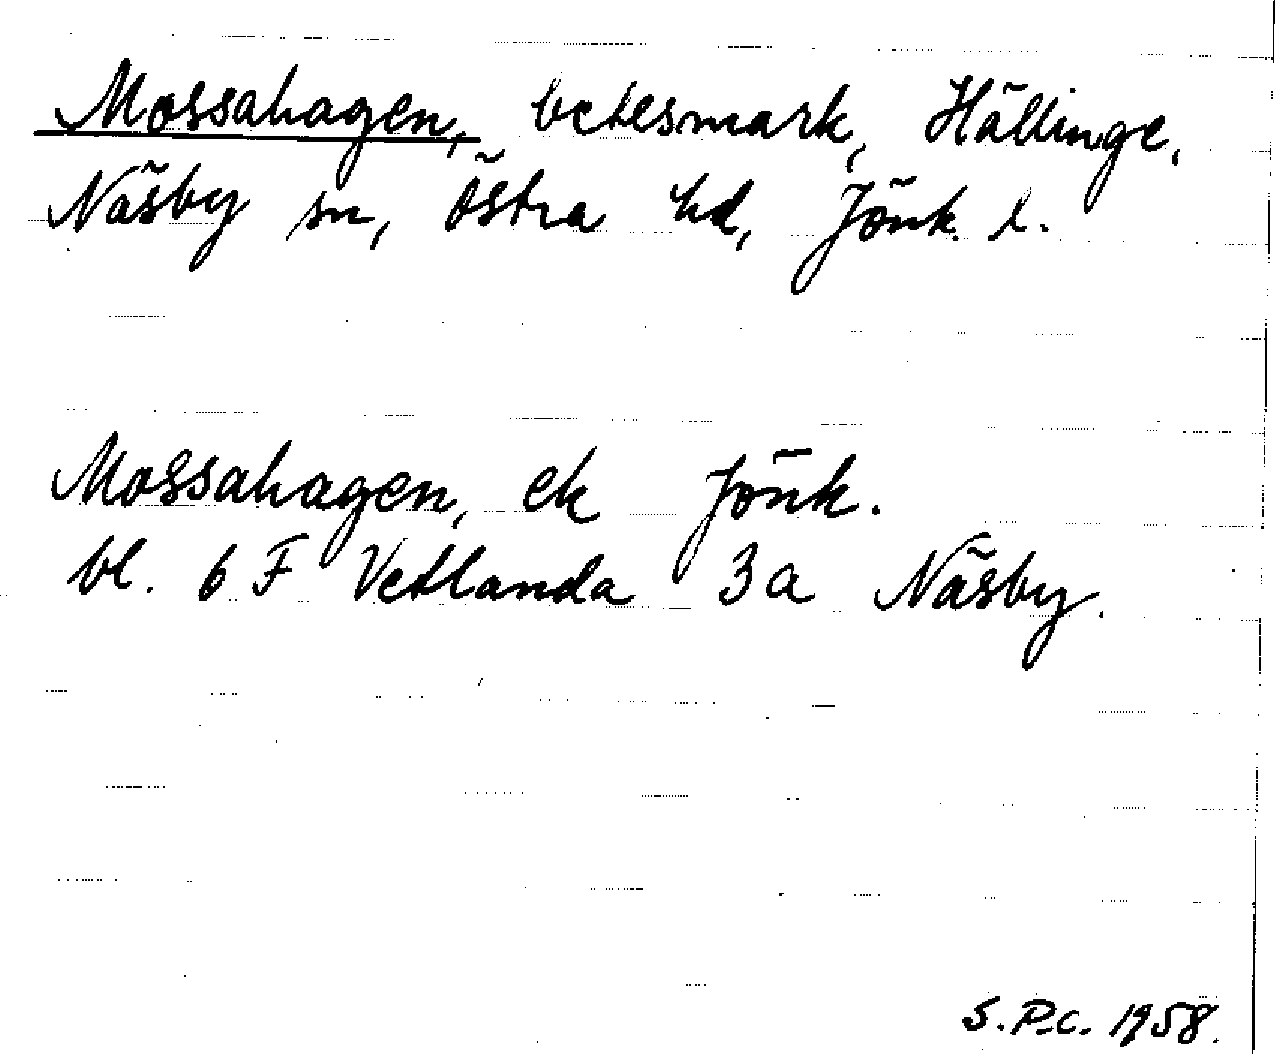 Mossahagen, betesmark, Hällinge,
Näsby sn, Östra hd, Jönk. l.
Mossahagen, ek Jönk.
bl. 6 F Vetlanda 3a Näsby.
S.P.c. 1958.